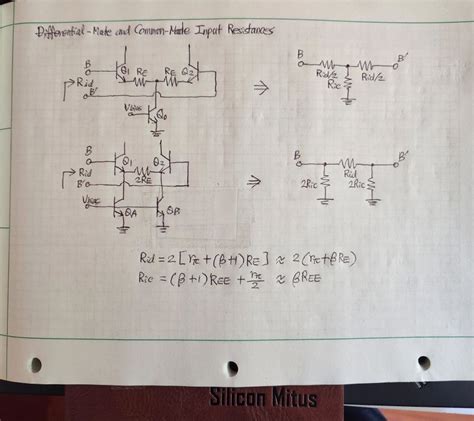 Differential-Mode and Common-Mode Input Resistances
B Q1 RE RE Q2
Rid
B'
Vbias Q0
⇒
B Rid/2 Rid/2 B'
Ric
B Q1 Q2
2RE
Rid
B'
Vbias QA QB
⇒
B Rid B'
2Ric 2Ric
Rid = 2[rπ + (β+1)RE] ≈ 2(rπ + βRE)
Ric = (β+1)REE + rπ/2 ≈ βREE
Silicon Mitus